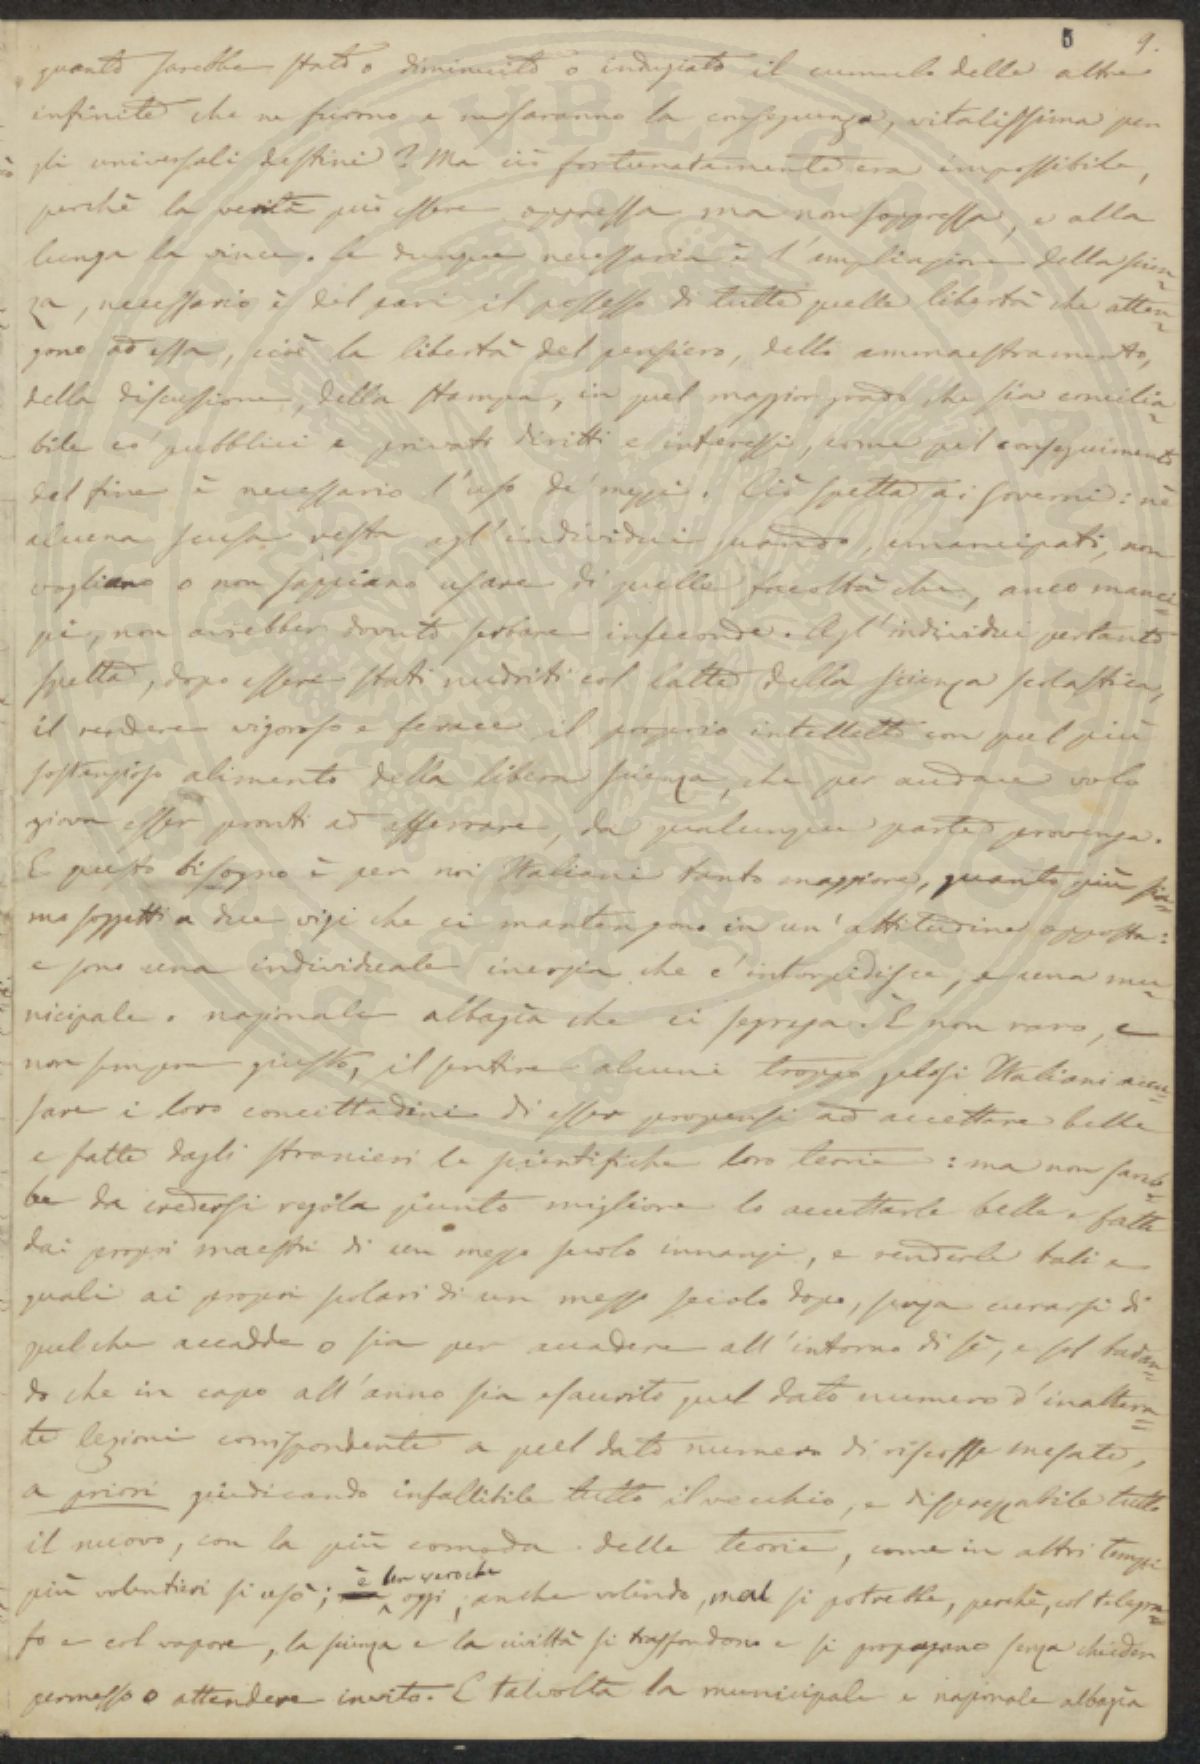 9.
quanto sarebbe stato diminuito o indugiato il cumulo delle altre
infinite che ne furono e ne saranno la conseguenza, vitalissima per
gli universali destini? Ma ciò fortunatamente era impossibile,
perchè la verità può essere oppressa ma non soppressa, e alla
lunga la vince. Se dunque necessaria è l'ampliazione della scien=
za, necessario è del pari il possesso di tutte quelle libertà che atten=
gono ad essa, cioè la libertà del pensiero, dello ammaestramento,
della discussione, della stampa, in quel maggior grado che sia concilia=
bile co' pubblici e privati diritti e interessi, come pel conseguimento
del fine è necessario l'uso de' mezzi. Ciò spetta ai Governi: nè
alcuna scusa resta agl'individui quando, emancipati, non
vogliano o non sappiano usare di quelle facoltà che, anco manci=
pi, non avrebber dovuto serbare infeconde. Agl'individui pertanto
spetta, dopo essere stati nudriti col latte della scienza scolastica,
il rendere vigoroso e ferace il proprio intelletto con quel più
sostanzioso alimento della libera scienza, che per audace volo
giova esser pronti ad afferrare, da qualunque parte provenga.
E questo bisogno è per noi Italiani tanto maggiore, quanto più sia=
mo soggetti a due vizi che ci mantengono in un'attitudine opposta:
e sono una individuale inerzia che c'intorpidisce, e una mu=
nicipale o nazionale albagìa che ci segrega. È non raro, e
non sempre giusto, il sentire alcuni troppo gelosi Italiani accu=
sare i loro concittadini di esser propensi ad accettare belle
e fatte dagli stranieri le scientifiche loro teorie: ma non sareb=
be da credersi regola punto migliore lo accettarle belle e fatte
dai propri maestri di un mezzo secolo innanzi, e renderle tali e
quali ai propri scolari di un mezzo secolo dopo, senza curarsi di
quel che accadde o sia per accadere all'intorno di sè, e sol badan=
do che in capo all'anno sia esaurito quel dato numero d'inaltera=
te lezioni corrispondente a quel dato numero di riscosse mesate,
a priori giudicando infallibile tutto il vecchio, e disprezzabile tutto
il nuovo, con la più comoda delle teorie, come in altri tempi
più volentieri si usò; è ben vero che oggi, anche volendo, mal si potrebbe, perchè, col telegra=
fo e col vapore, la scienza e la civiltà si trasfondono e si propagano senza chieder
permesso o attendere invito. E talvolta la municipale e nazionale albagìa